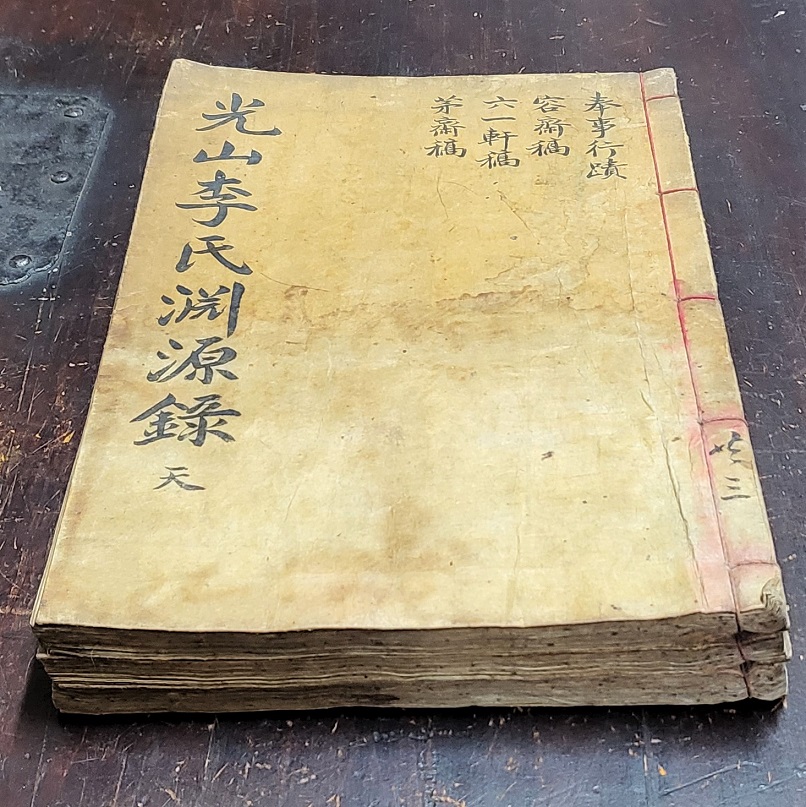 奉事行蹟
容齋稿
六一軒稿
茅齋稿
光山李氏淵源錄
天
共三